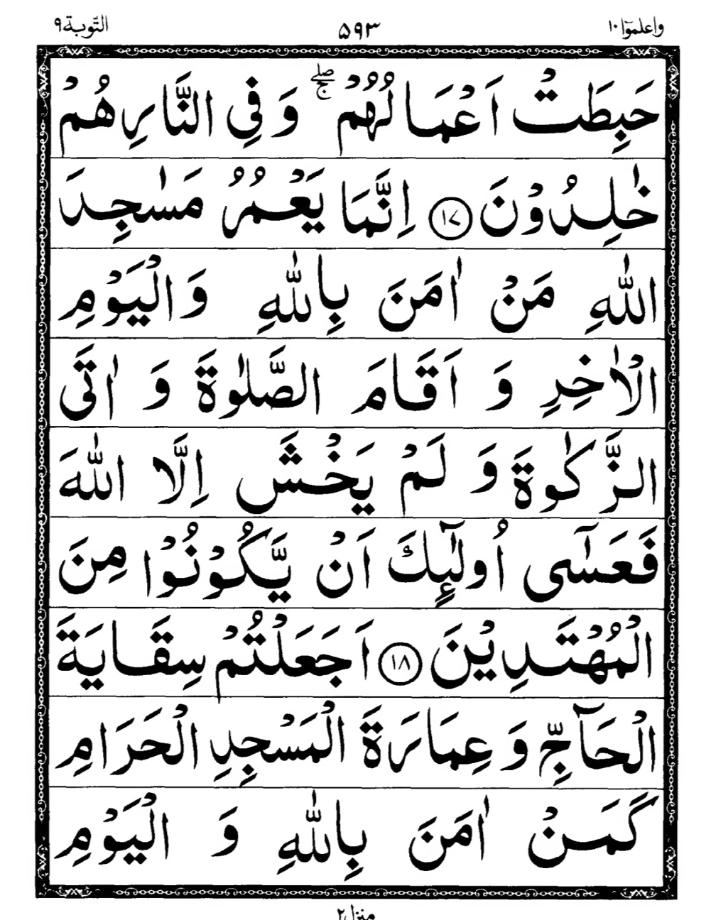 واعلموۤا ١٠ ۵۹۳ التّوبة ٩
حَبِطَتْ اَعْمَالُهُمْ ۖۚ وَفِي النَّارِ هُمْ
خٰلِدُوْنَ ﴿۱۷﴾ اِنَّمَا يَعْمُرُ مَسٰجِدَ
اللّٰهِ مَنْ اٰمَنَ بِاللّٰهِ وَالْيَوْمِ
الْاٰخِرِ وَ اَقَامَ الصَّلٰوةَ وَ اٰتَى
الزَّكٰوةَ وَ لَمْ يَخْشَ اِلَّا اللّٰهَ
فَعَسٰۤى اُولٰٓئِكَ اَنْ يَّكُوْنُوْا مِنَ
الْمُهْتَدِيْنَ ﴿۱۸﴾ اَجَعَلْتُمْ سِقَايَةَ
الْحَآجِّ وَ عِمَارَةَ الْمَسْجِدِ الْحَرَامِ
كَمَنْ اٰمَنَ بِاللّٰهِ وَ الْيَوْمِ
منزل ٢